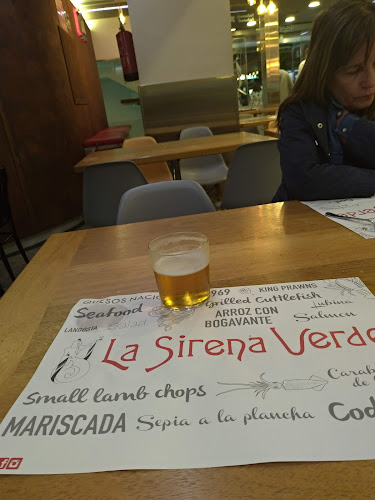 QUESOS NACIO
1969
KING PRAWNS
Seafood
Grilled Cuttlefish
Lubina
LANGOSTA
Salad
ARROZ CON
BOGAVANTE
Salmon
La Sirena Verde
Small lamb chops
Carab
de
MARISCADA
Sepia a la plancha
Cod